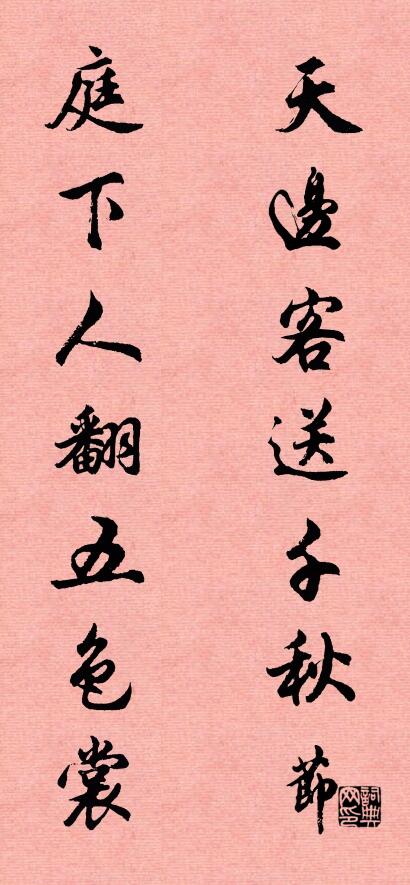 天邊客送千秋節
庭下人翻五色裳
詞典网印